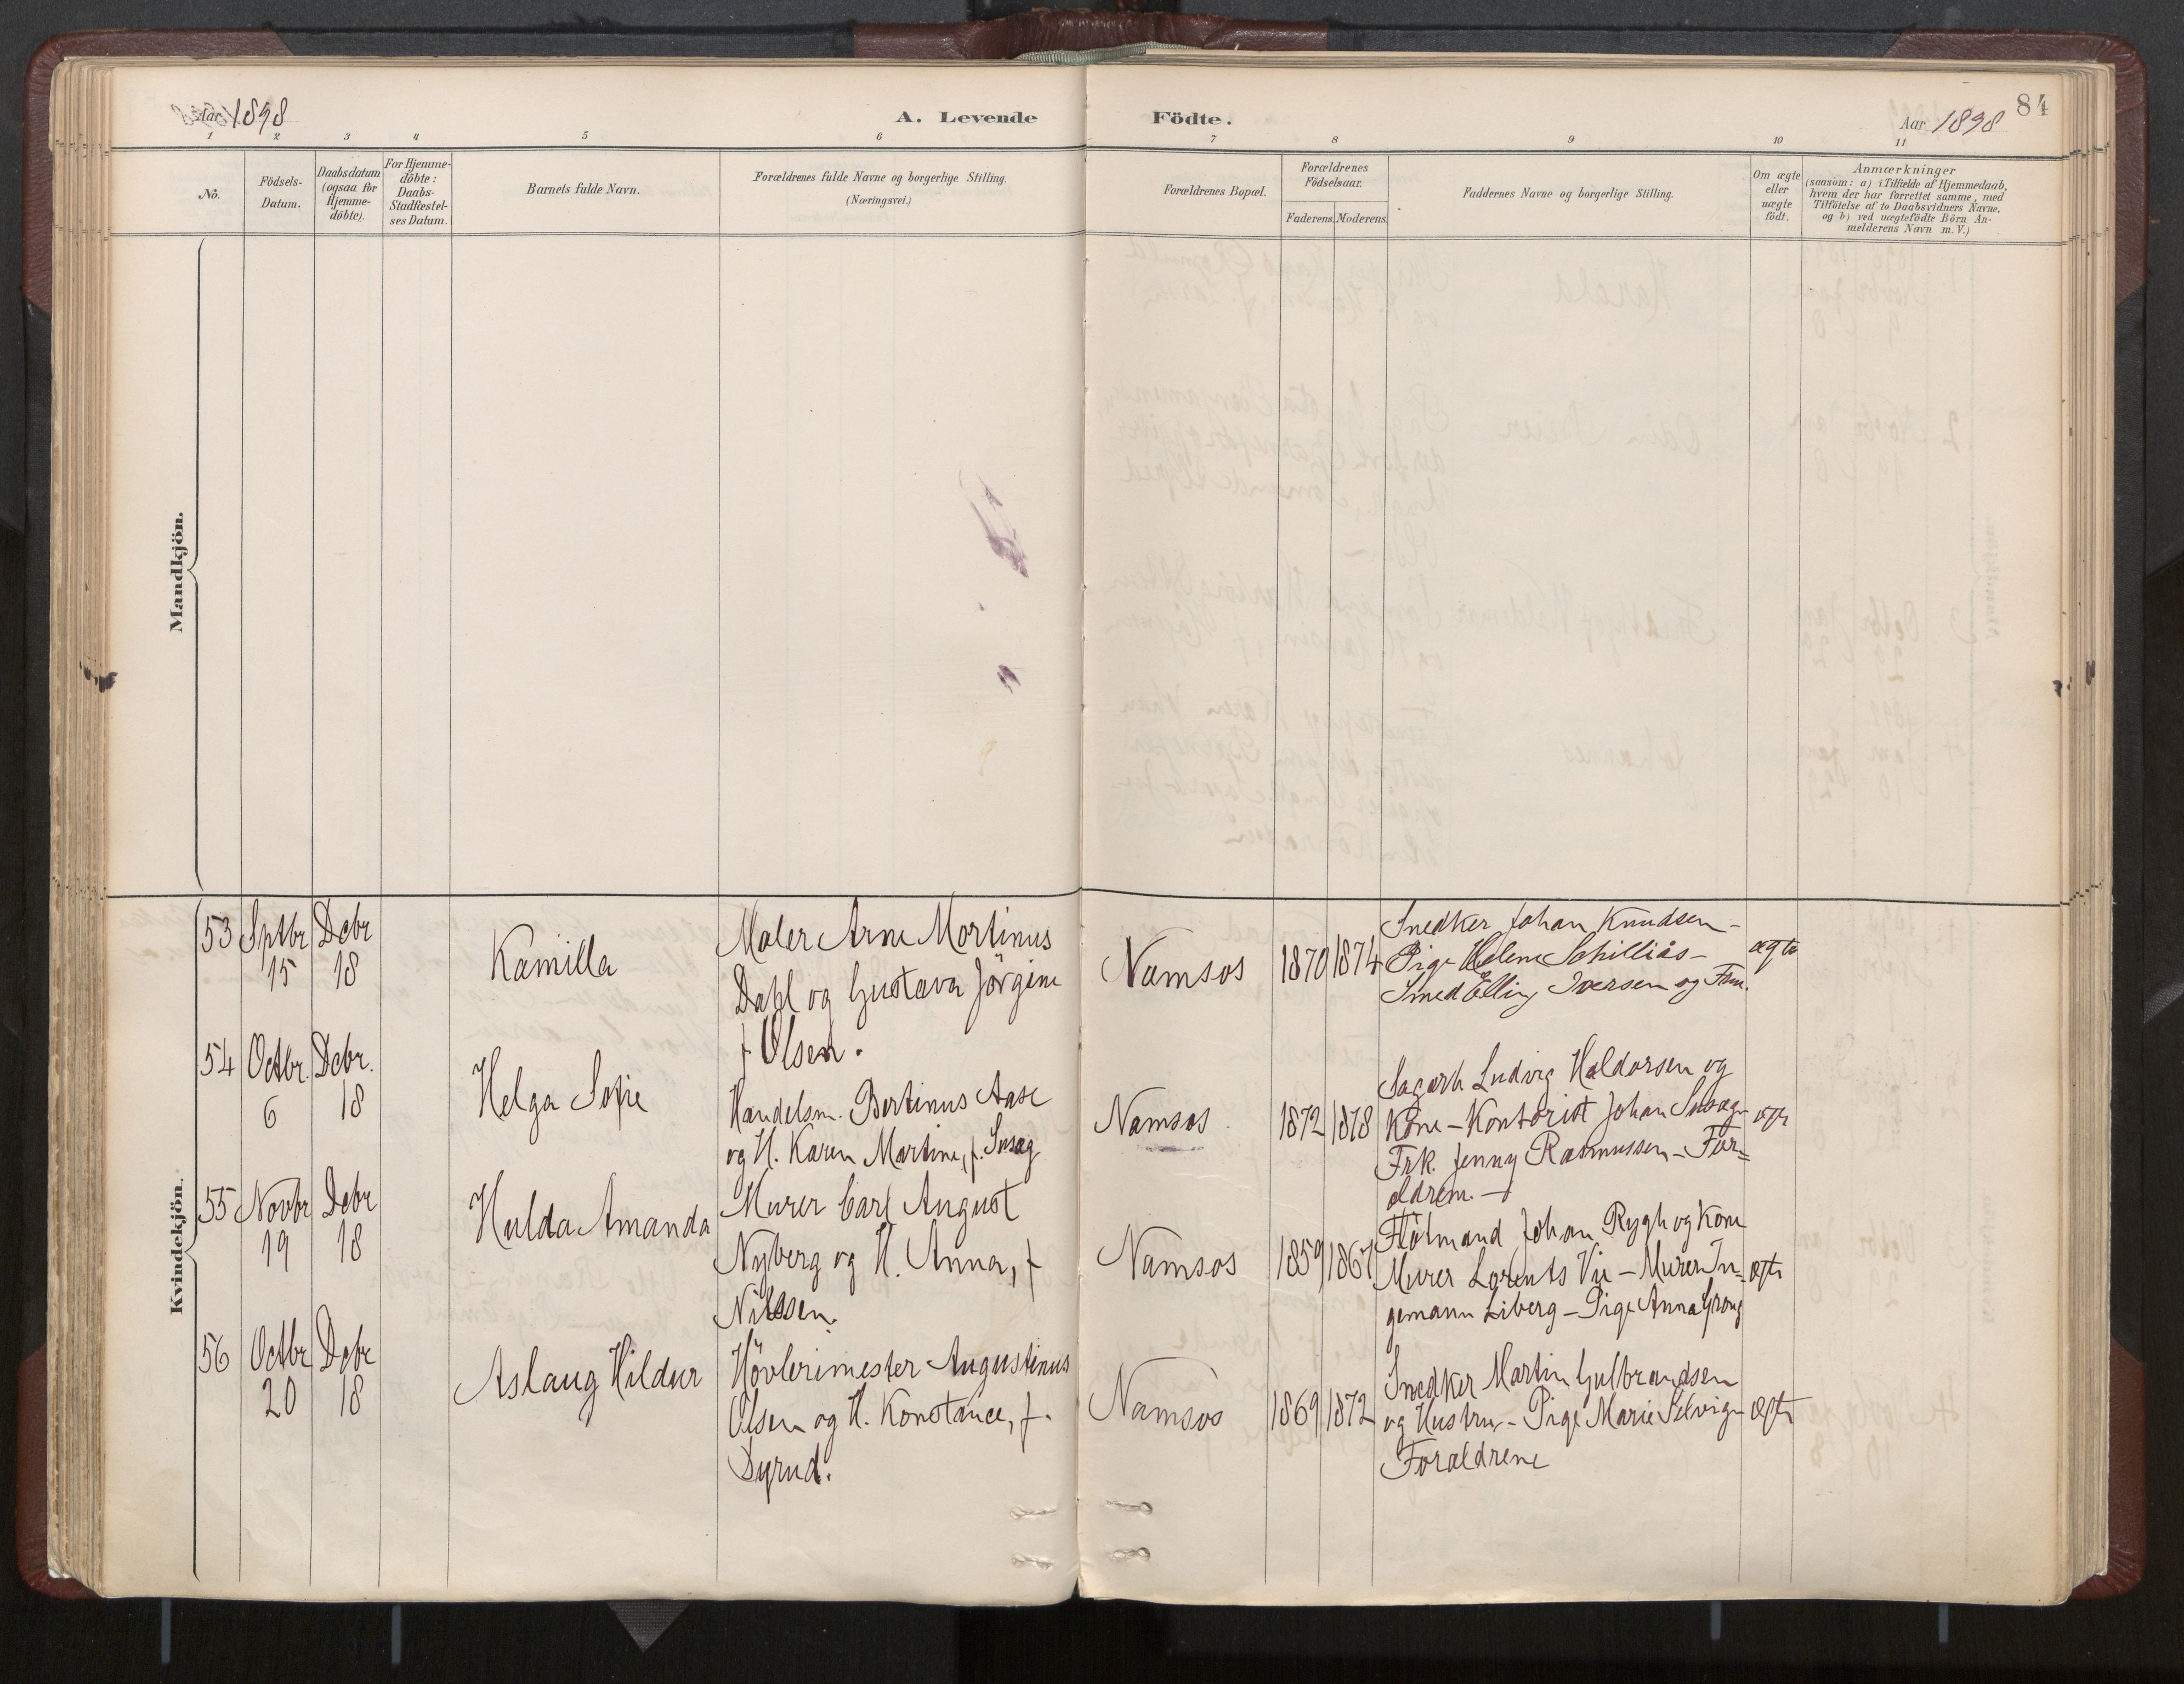 Aar 1898
A. Levende
Födte.
Aar 1898
84
1 2 3 4 5 6 7 8 9 10 11
No.
Födsels-
Datum.
Daabsdatum
(ogsaa for
Hjemme-
döbte).
For Hjemme-
döbte:
Daabs-
Stadfæstel-
ses Datum.
Barnets fulde Navn.
Forældrenes fulde Navne og borgerlige Stilling.
(Næringsvei.)
Forældrenes Bopæl.
Forældrenes
Födselsaar.
Faderens. Moderens.
Faddernes Navne og borgerlige Stilling.
Om ægte
eller
uægte
födt.
Anmærkninger
(saasom: a) i Tilfælde af Hjemmedaab,
hvem der har forrettet samme, med
Tilföielse af to Daabsvidners Navne,
og b) ved uægtefödte Börn An-
melderens Navn m. V.)
Mandkjön.
Kvindekjön.
53 Sptbr 15 Dcbr 18
Kamilla
Maler Arne Martinus
Dahl og Gustava Jörgine
f Olsen.
Namsos
1870 1874
Snedker Johan Knudsen -
Pige Helene Schilliås -
Smed Elling Iversen og Fru.
ægte
54 Octbr. 6 Dcbr. 18
Helga Sofie
Handelsm. Bertinus Aase
og H. Karen Martine, f. Snsag
Namsos
1872 1878
Sagarb Ludvig Haldorsen og
Kone - Kontorist Johan
Frk. Jenny Rasmussen - For=
ældrene. -
ægte
55 Novbr 19 Dcbr 18
Hulda Amanda
Murer Carl August
Nyberg og H. Anna, f
Nilssen.
Namsos
1859 1867
Flötmand Johan Rygh og Kone
Murer Lorents Vie - Murer In-
gemann Liberg - Pige Anna Grong
ægte
56 Octbr 20 Dcbr 18
Aslaug Hildur
Hövlerimester Augustinus
Olsen og H. Konstance, f.
Dyrud.
Namsos
1869 1872
Snedker Martin Gulbrandsen
og Hustru - Pige Marie Selvig -
Foraldrene
ægte